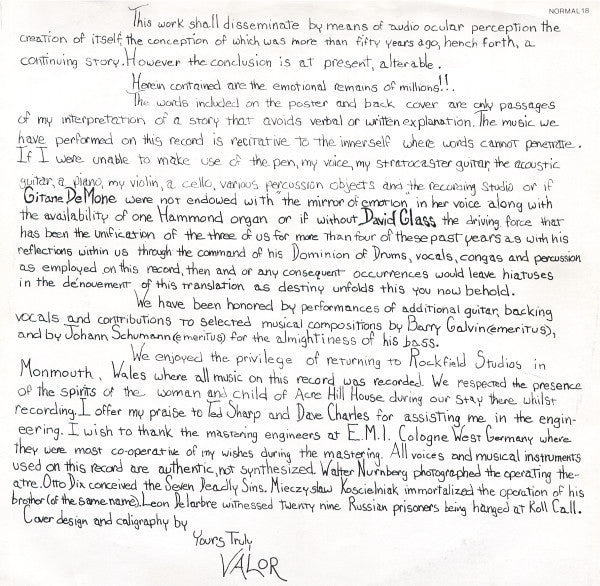 NORMAL 18
This work shall disseminate by means of audio ocular perception the
creation of itself, the conception of which was more than fifty years ago, hench forth, a
continuing story. However the conclusion is at present, alterable.
Herein contained are the emotional remains of millions!!.
The words included on the poster and back cover are only passages
of my interpretation of a story that avoids verbal or written explanation. The music we
have performed on this record is recitative to the innerself where words cannot penetrate.
If I were unable to make use of the pen, my voice, my stratocaster guitar, the acoustic
guitar, a piano, my violin, a cello, various percussion objects and the recording studio or if
Gitane DeMone were not endowed with "the mirror of emotion" in her voice along with
the availability of one Hammond organ or if without David Glass the driving force that
has been the unification of the three of us for more than four of these past years as with his
reflections within us through the command of his Dominion of Drums, vocals, congas and percussion
as employed on this record, then and or any consequent occurrences would leave hiatuses
in the dénouement of this translation as destiny unfolds this you now behold.
We have been honored by performances of additional guitar, backing
vocals and contributions to selected musical compositions by Barry Galvin (emeritus),
and by Johann Schumann (emeritus) for the almightiness of his bass.
We enjoyed the privilege of returning to Rockfield Studios in
Monmouth, Wales where all music on this record was recorded. We respected the presence
of the spirits of the woman and child of Acre Hill House during our stay there whilst
recording. I offer my praise to Ted Sharp and Dave Charles for assisting me in the engin-
eering. I wish to thank the mastering engineers at E.M.I. Cologne West Germany where
they were most co-operative of my wishes during the mastering. All voices and musical instruments
used on this record are authentic, not synthesized. Walter Nürnberg photographed the operating the-
atre. Otto Dix conceived the Seven Deadly Sins. Mieczyslaw Koscielniak immortalized the operation of his
brother (of the same name). Leon Delarbre witnessed twenty nine Russian prisoners being hanged at Roll Call.
Cover design and caligraphy by
Yours Truly,
VALOR